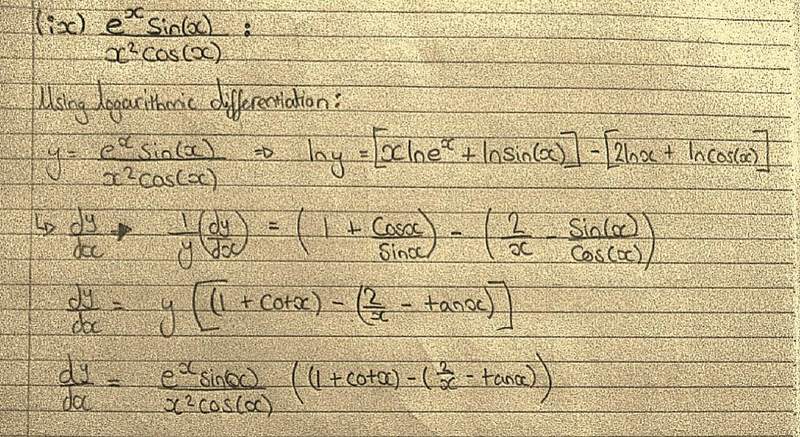 (ix) e^x sin(x) / x² cos(x) :
Using logarithmic differentiation:
y = e^x sin(x) / x² cos(x) ⇒ ln y = [x ln e^x + ln sin(x)] - [2 ln x + ln cos(x)]
↳ dy/dx → 1/y (dy/dx) = (1 + Cosx/Sinx) - (2/x - Sin(x)/Cos(x))
dy/dx = y [(1 + cotx) - (2/x - tanx)]
dy/dx = e^x sin(x) / x² cos(x) ((1 + cotx) - (2/x - tanx))